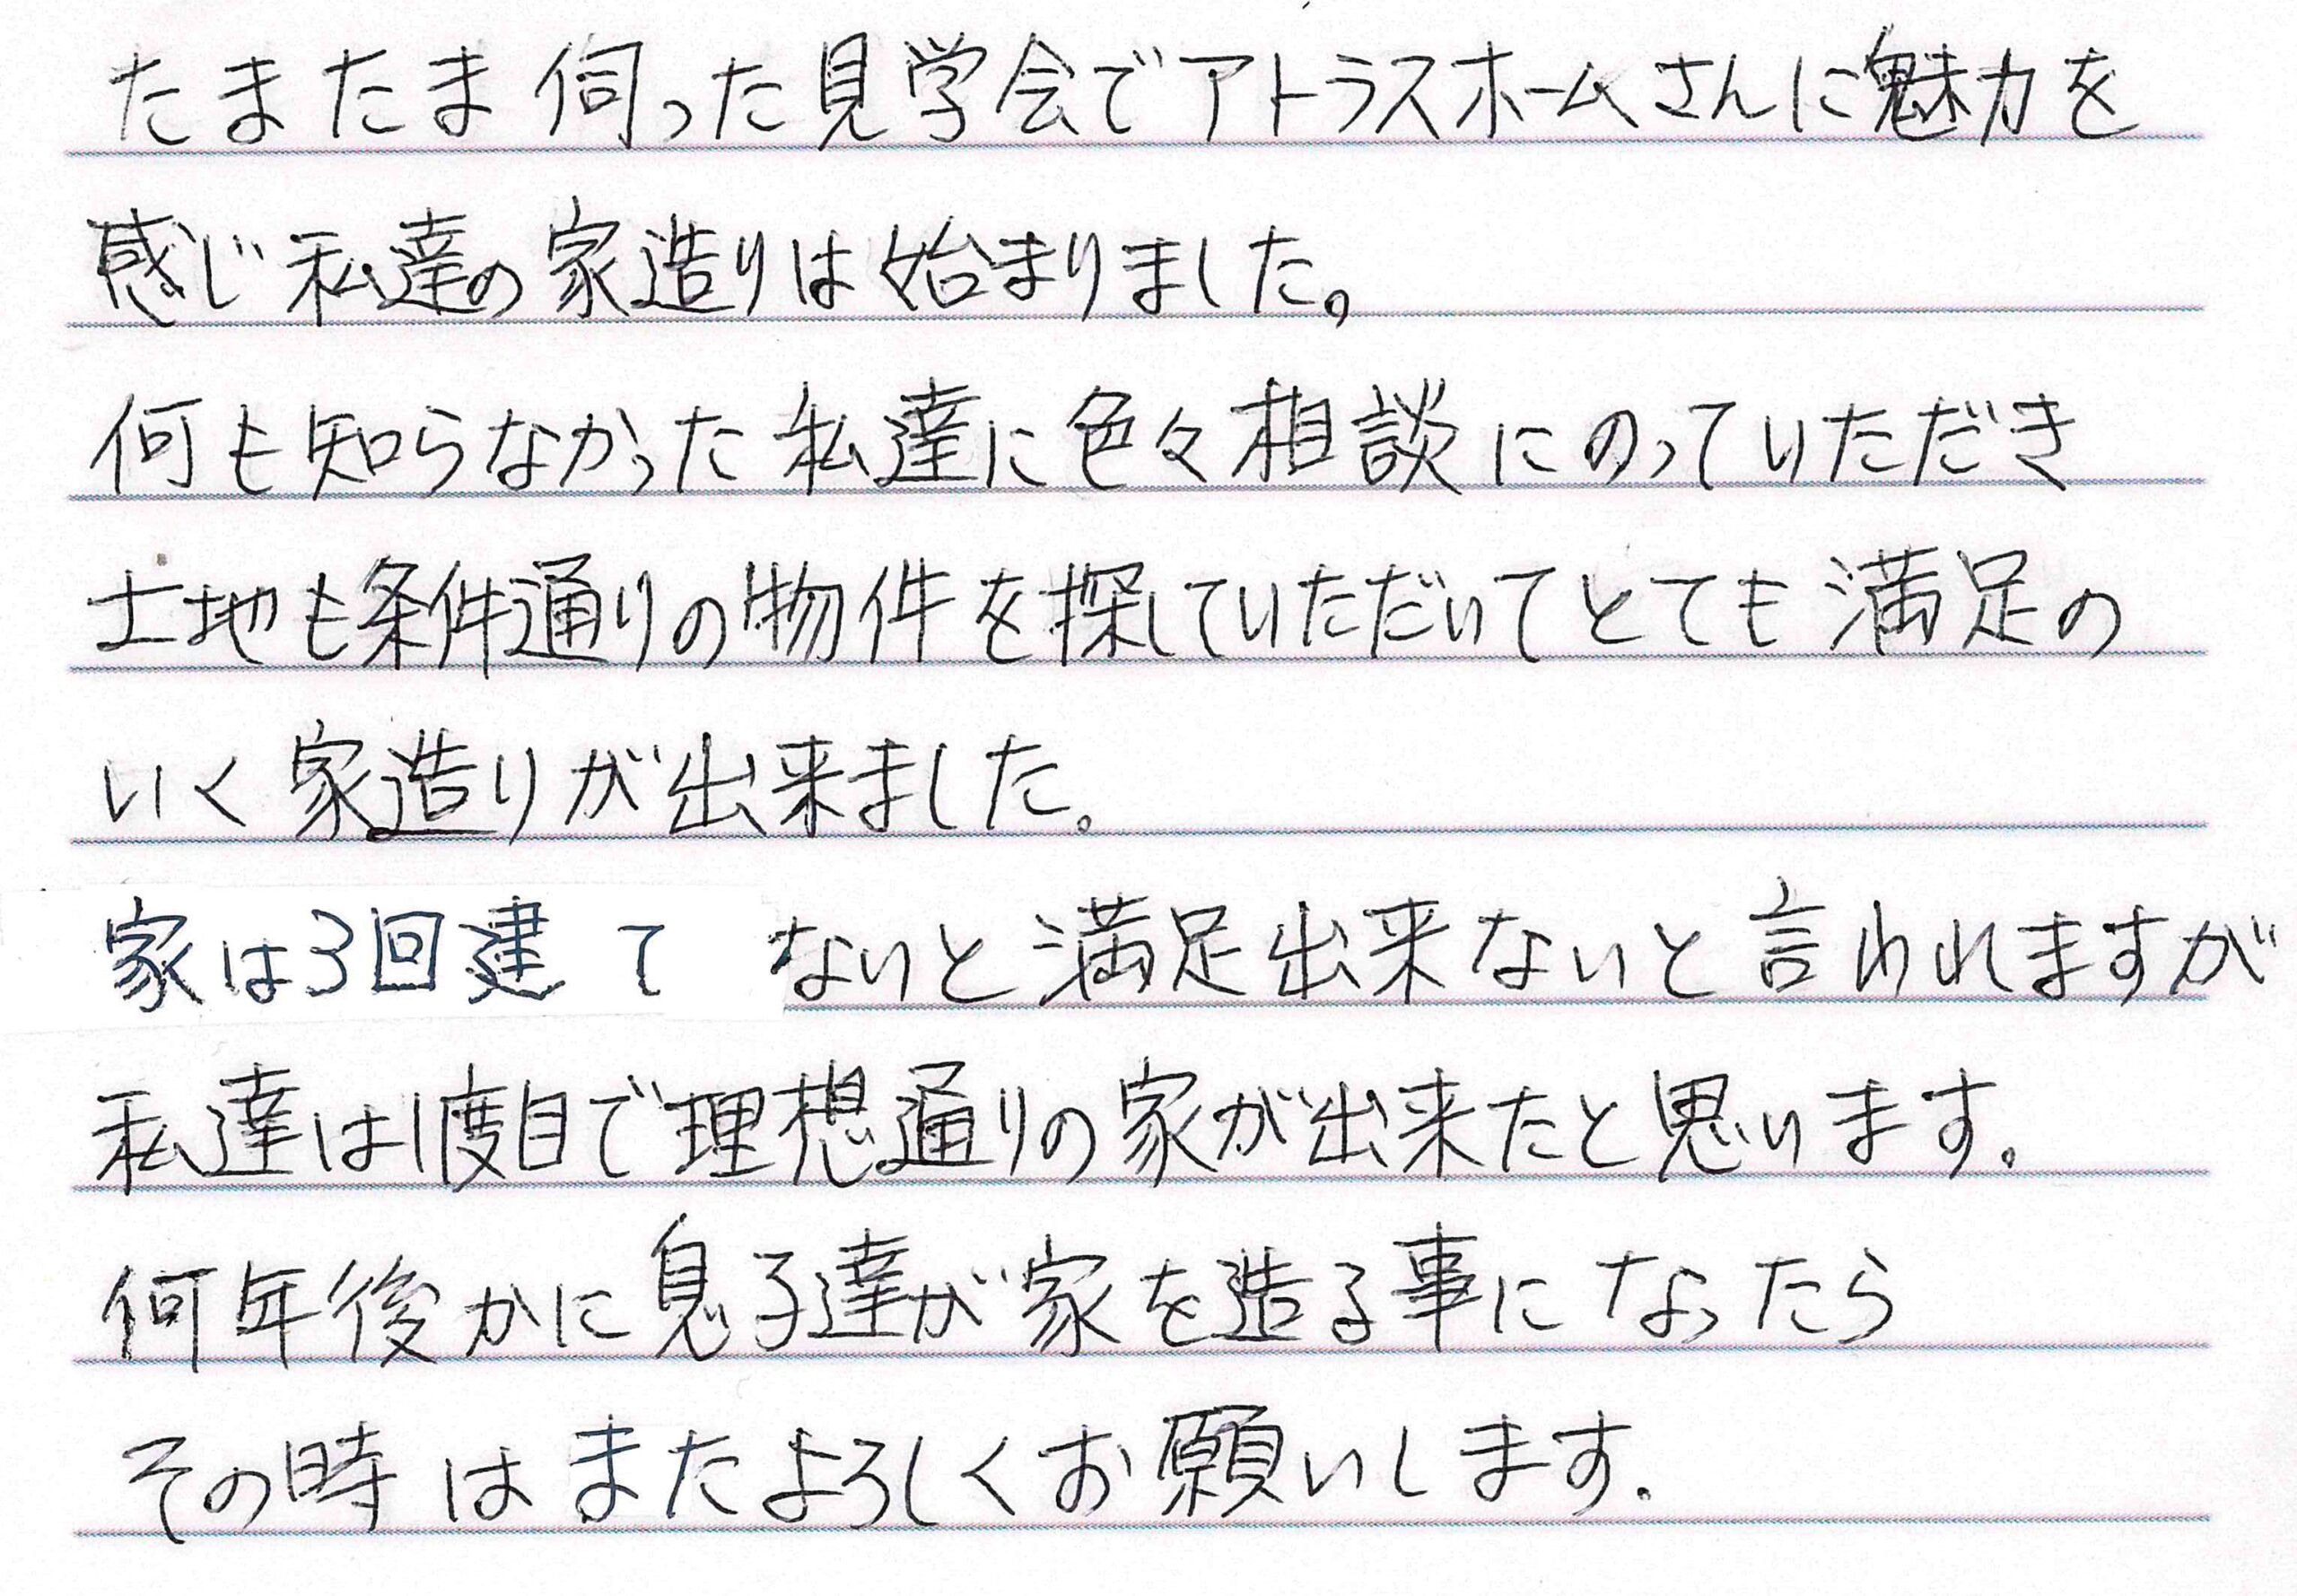 たまたま伺った見学会でアトラスホームさんに魅力を
感じ私達の家造りは始まりました。
何も知らなかった私達に色々相談にのっていただき
土地も条件通りの物件を探していただいてとても満足の
いく家造りが出来ました。
家は3回建て ないと満足出来ないと言われますが
私達は1度目で理想通りの家が出来たと思います。
何年後かに息子達が家を造る事になったら
その時はまたよろしくお願いします.